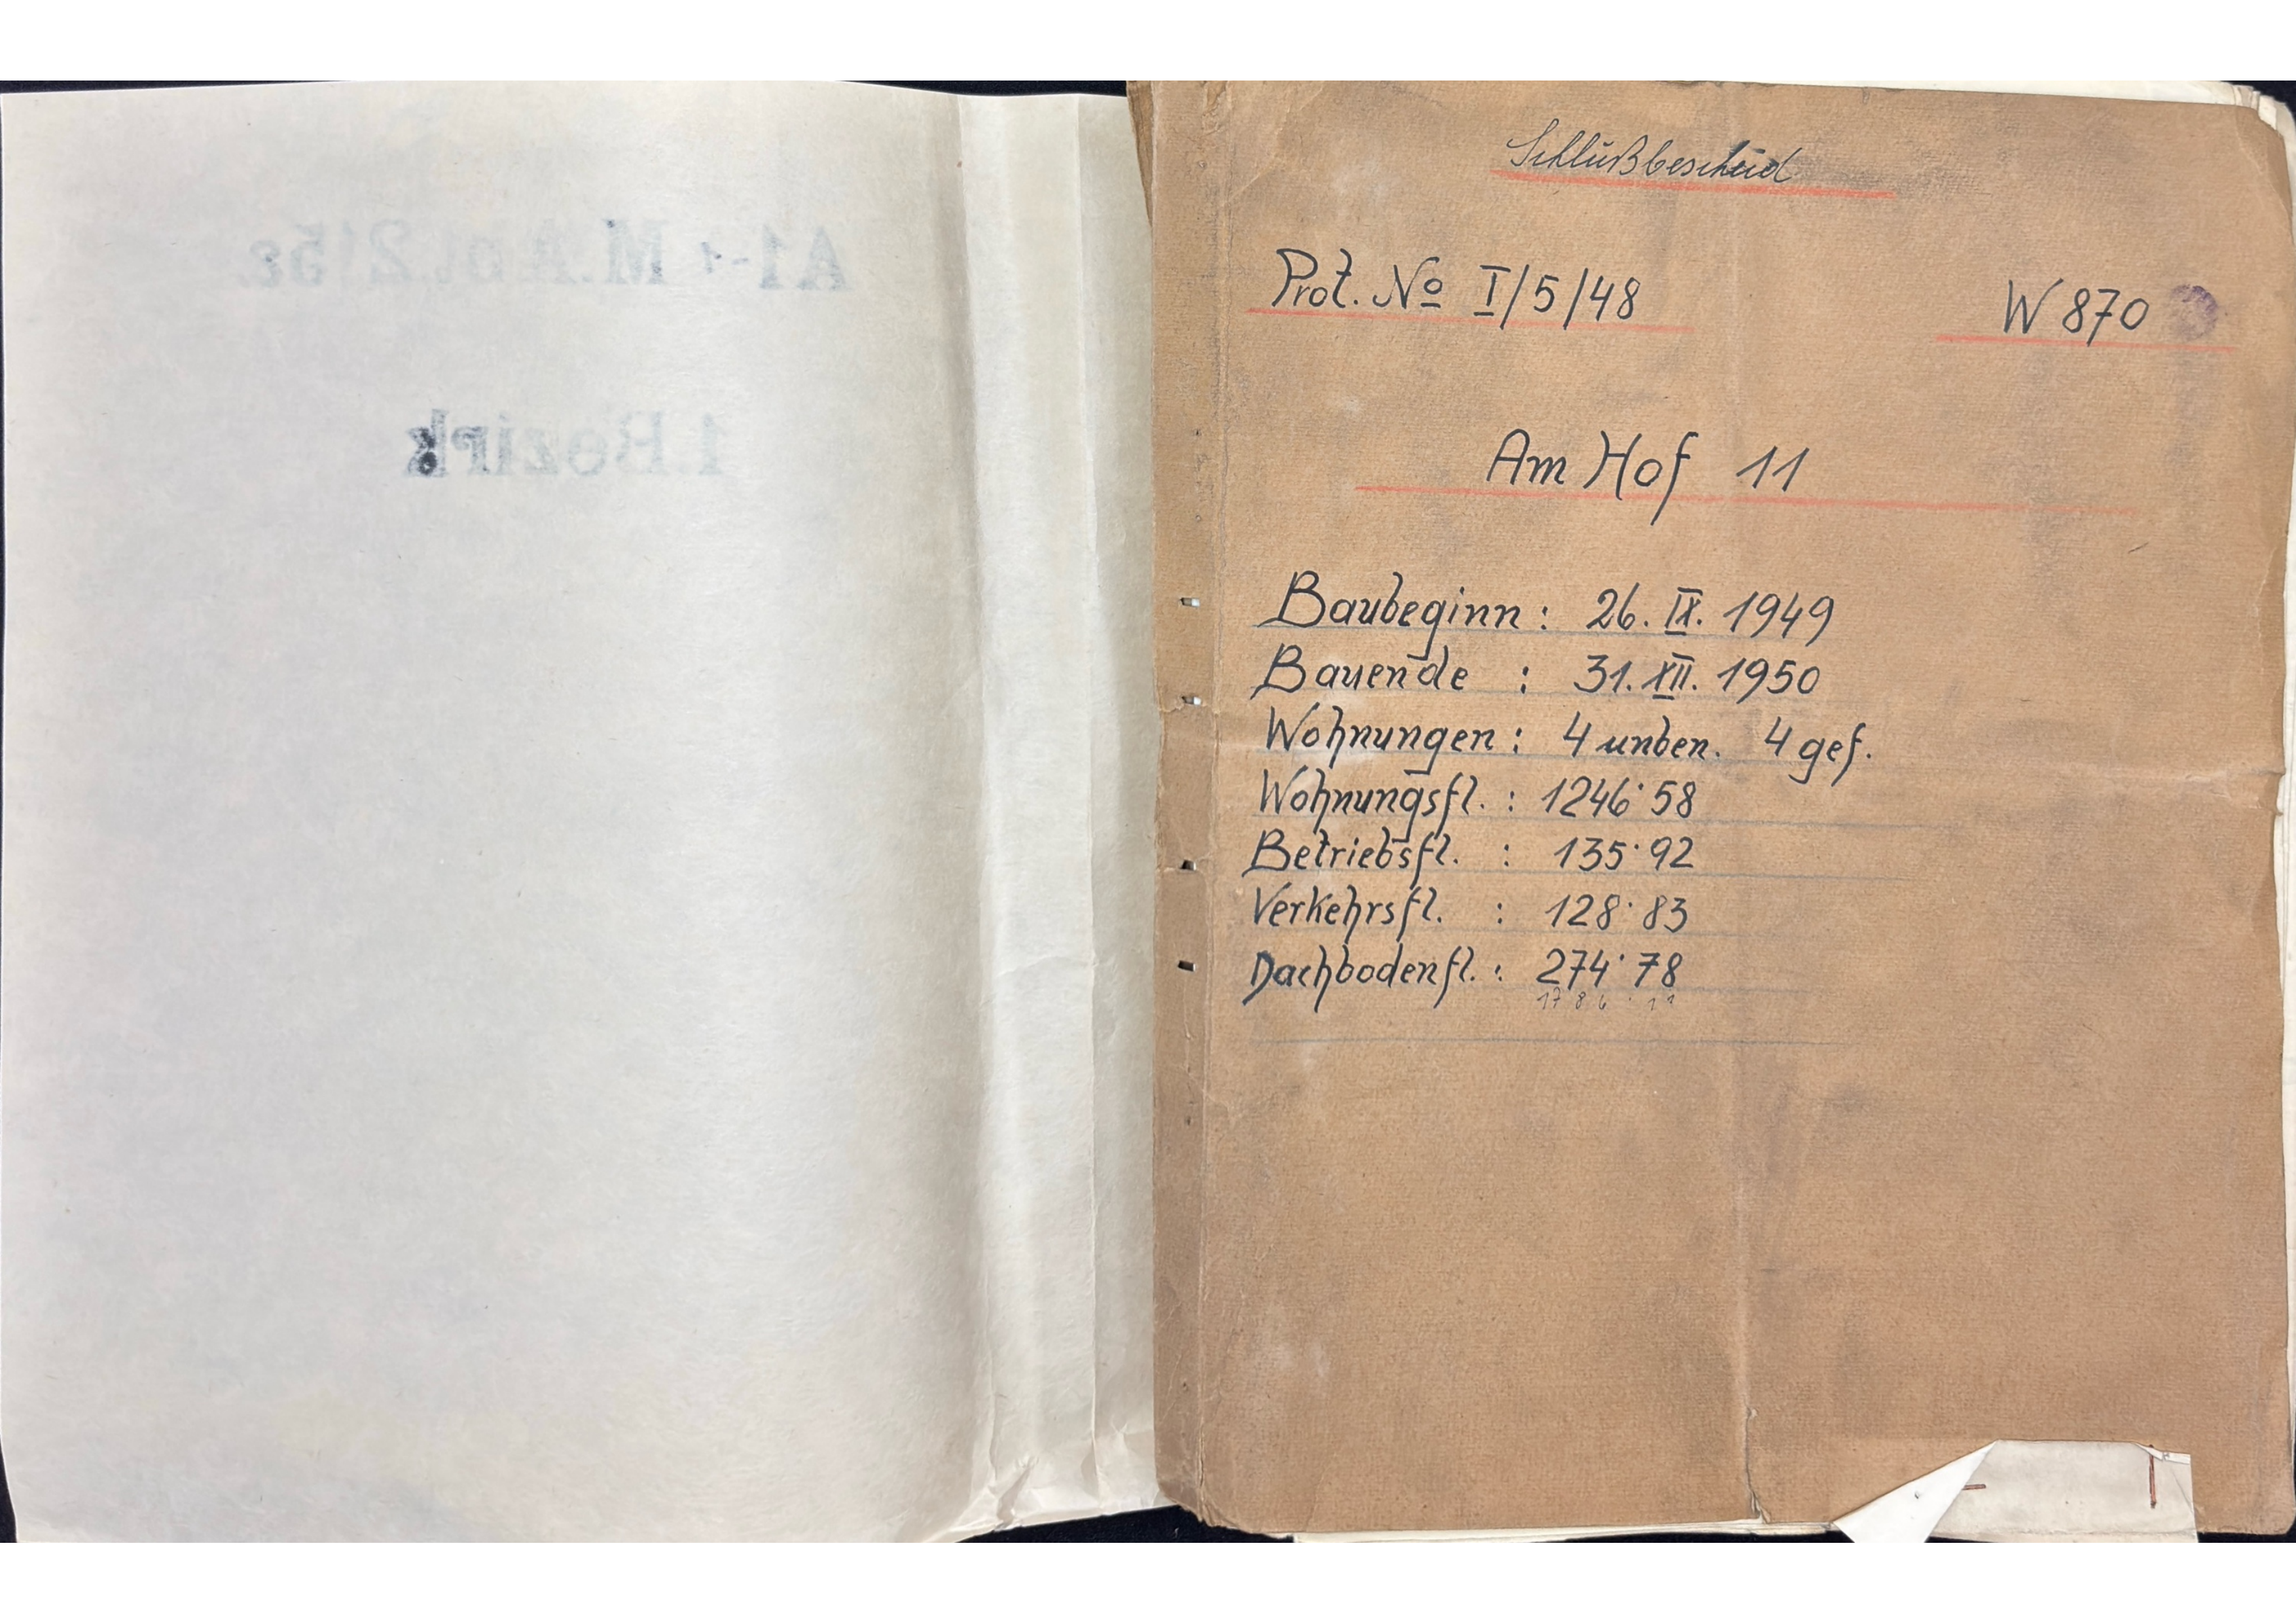 1 Bezirk
Schlußbescheid
Prot. No I/5/48
W 870
Am Hof 11
Baubeginn: 26. IX. 1949
Bauende : 31. XII. 1950
Wohnungen: 4 unben. 4 gef.
Wohnungsfl. : 1246·58
Betriebsfl. : 135·92
Verkehrsfl. : 128·83
Dachbodenfl. : 274·78
1786·11